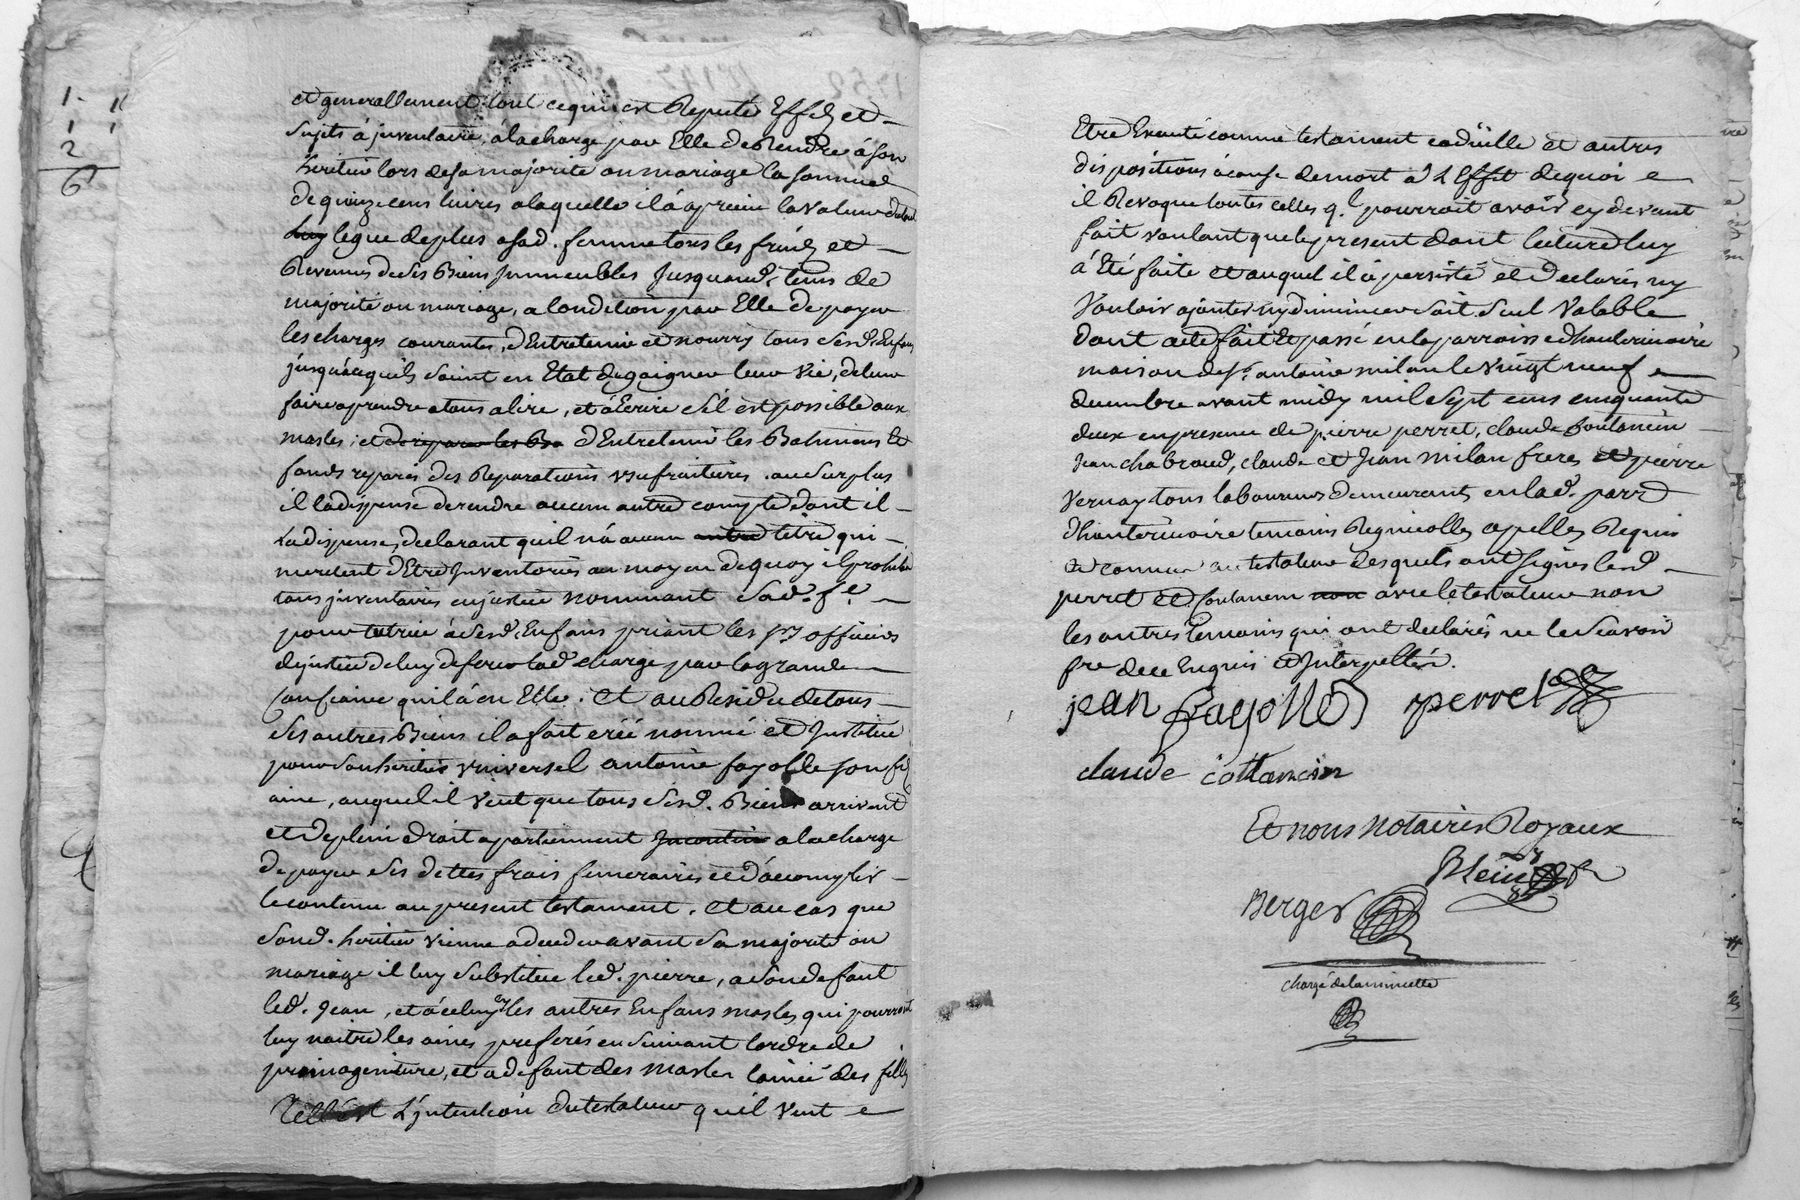 et generallement tout ce qui est Reputé Effets et
sujets à jnventaire, à la charge par Elle de Rendre à son
heritier lors de sa majorité ou mariage la somme
de quinze cens livres a laquelle il à aprecié la valeur
luy legue de plus a sad. femme tous les fruits et
Revenus de ses Biens Jmmeubles Jusquaud. tems de
majorité ou mariage, a Condition par Elle de payer
les charges courantes, d'Entretenir et nourry tous sesd. Enfans
jusqu'àcequils soint en Etat de gaigner leur vie, de leur
faire aprendre a tous a lire, et à Ecrire s'il est possible aux
masles, et de reparer les Ba d'Entretenir les Batimens Et
fonds reparés des Reparations usufruitieres. au surplus
il la dispense de rendre aucun autre compte dont il
La dispense, declarant qu'il n'à aucun autre titre qui
meritent d'Etre Jnventoriés au moyen de quoy il prohibe
tous jnventaires en justice nommant sad. fe.
pour tutrice à sesd. Enfans priant les srs officiers
de justice de luy deferer lad. charge par la grande
Confiance quil à en Elle. Et au Residu de tous
ses autres Biens il a fait créé nommé et Jnstitué
pour son heritier universel antoine fayolle son fils
ainé, auquel il veut que tous sesd. Biens arrivent
et de plein droit apartiennent Jncontin a la charge
de payer ses dettes frais funeraires et d'acomplir
le contenu au present testament. Et au cas que
sond. heritier vienne a deceder avant sa majorité ou
mariage il luy substitue led. pierre, a son defaut
led. Jean, et à celuy cy les autres Enfans masles qui pourront
luy naitre les ainés preferés en suivant l'ordre de
primogeniture, et a defaut des masles l'ainée des filles
Telle est L'jntention du testateur qu'il veut
Etre Executé comme testament codicille et autres
dispositions à cause de mort a L'Effet de quoi
il Revoque toutes celles q.l pourroit avoir cy devant
fait voulant que le present dont lecture luy
à Eté faite et auquel il à persisté et declaré ny
Vouloir ajouter ny diminuer soit seul Valable
dont acte fait et passé en la parroisse d'hauterivoire
maison de sr. antoine milan le vingt neuf
decembre avant midy mil sept cens cinquante
deux en presence de pierre perret, claude Coutancin
Jean chabroud, claude et Jean milan freres et pierre
vernay tous laboureurs demeurants en lad. parr.
d'hauterivoire temoins Regnicolles apellés Requis
et connus au testateur desquels ont signés lesd.
perret et Coutancin non avec le testateur non
les autres temoins qui ont declarés ne le sçavoir
fre de ce Enquis et Jnterpellés.
jean fayolle perret
claude cottancin
Et nous Notaires Royaux
Berger
chargé de la minutte
1. 1
1 1
2
6